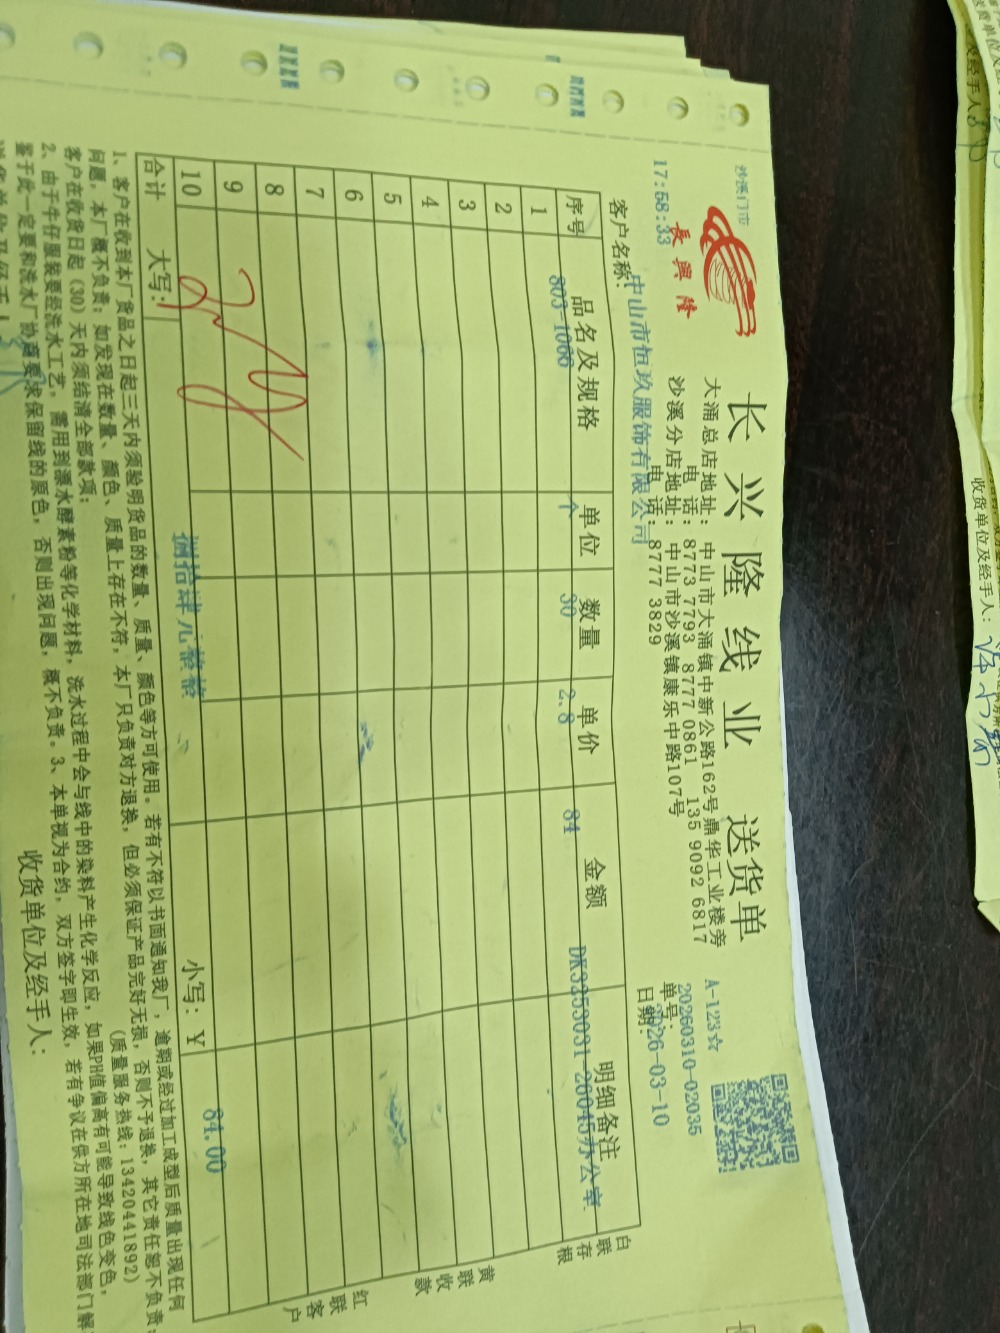 沙溪门市
17:58:33
長興隆
长兴隆线业 送货单
大涌总店地址：中山市大涌镇中新公路162号鼎华工业楼旁
电 话：8773 7793 8777 0861 135 9092 6817
沙溪分店地址：中山市沙溪镇康乐中路107号
电 话：8777 3829
A-123☆
单号：20260310-02035
日期：2026-03-10
客户名称：中山市恒玖服饰有限公司
序号 品名及规格 单位 数量 单价 金额 明细备注
1 803-1066 个 30 2.8 84 DK3353031-26045办公室
2
3
4
5
6
7
8
9
10
合计 大写：捌拾肆元整 小写：￥ 84.00
白联存根
黄联收款
红联客户
1、客户在收到本厂货品之日起三天内须验明货品的数量、质量、颜色等方可使用。若有不符以书面通知我厂，逾期或经过加工成型后质量出现任何
问题，本厂概不负责；如发现在数量、颜色、质量上存在不符，本厂只负责对方退换，但必须保证产品完好无损，否则不予退换，其它责任恕不负责；
客户在收货日起（30）天内须结清全部款项；（质量服务热线：13420441892）
2、由于牛仔服装要经洗水工艺，需用到漂水酵素粉等化学材料，洗水过程中会与线中的染料产生化学反应，如果PH值偏高有可能导致线色变色，
鉴于此一定要和洗水厂协商要求保留线的原色，否则出现问题，概不负责。3、本单视为合约，双方签字即生效，若有争议在供方所在地司法部门解
收货单位及经手人：
收货单位及经手人：